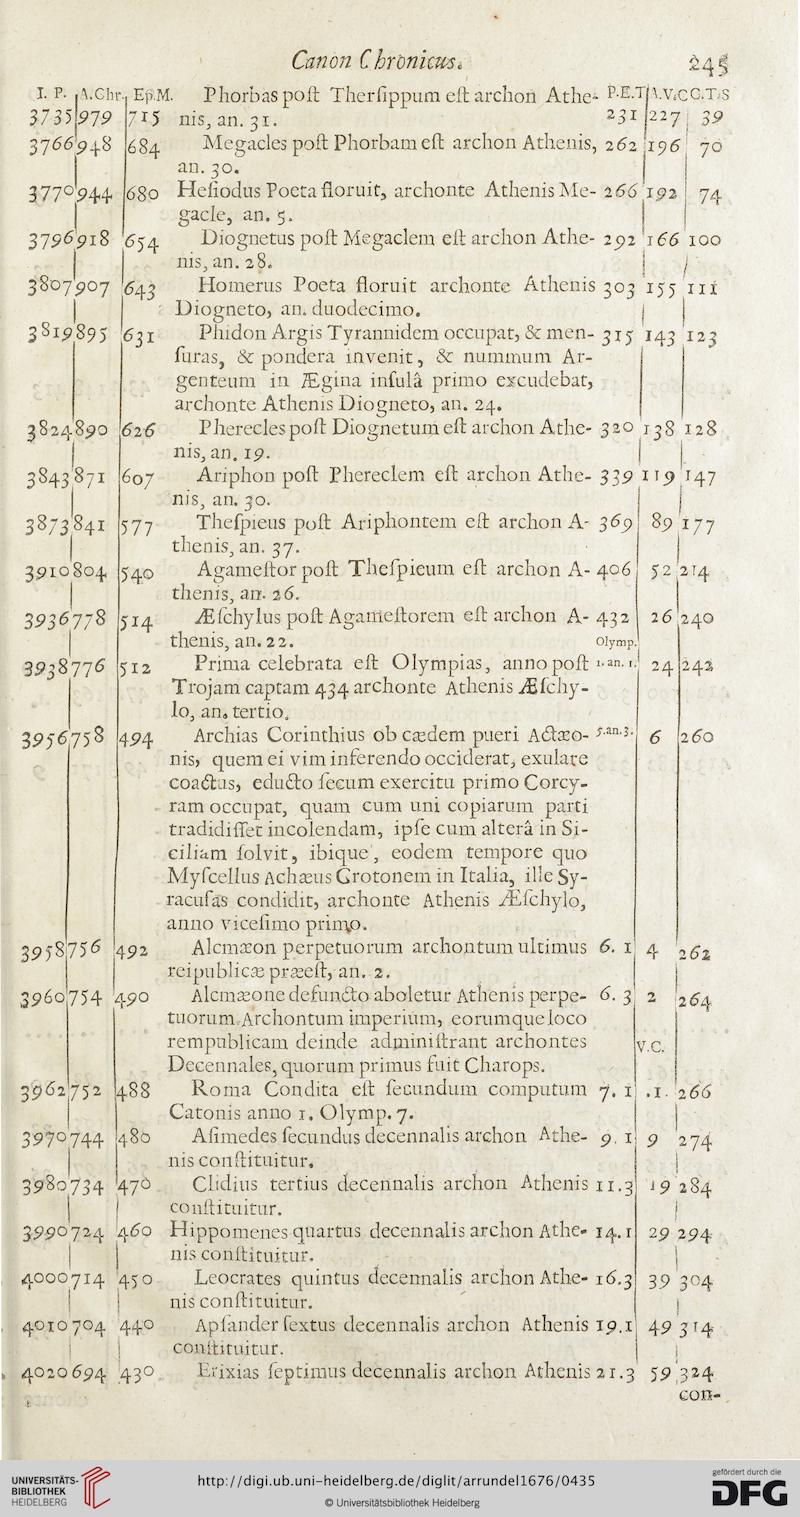 Canon Chronicus. 245
I. P. A.Chr. Ep.M. Phorbas post Thersippum est archon Athe- P.E.T A.V.C C.T.S
3735 979 715 nis, an. 31. 231 227 39
3766 948 684 Megacles post Phorbam est archon Athenis, 262 196 70
an. 30.
3770 944 680 Hesiodus Poeta floruit, archonte Athenis Me- 266 192 74
gacle, an. 5.
3796 918 654 Diognetus post Megaclem est archon Athe- 292 166 100
nis, an. 28.
3807 907 643 Homerus Poeta floruit archonte Athenis 303 155 111
Diogneto, an. duodecimo.
3819 895 631 Phidon Argis Tyrannidem occupat, & men- 315 143 123
suras, & pondera invenit, & nummum Ar-
genteum in Ægina insulâ primo excudebat,
archonte Athenis Diogneto, an. 24.
3824 890 626 Pherecles post Diognetum est archon Athe- 320 138 128
nis, an. 19.
3843 871 607 Ariphon post Phereclem est archon Athe- 339 119 147
nis, an. 30.
3873 841 577 Thespieus post Ariphontem est archon A- 369 89 177
thenis, an. 37.
3910 804 540 Agamestor post Thespieum est archon A- 406 52 214
thenis, an. 26.
3936 778 514 Æschylus post Agamestorem est archon A- 432 26 240
thenis, an. 22. Olymp.
3938 776 512 Prima celebrata est Olympias, anno post 1. an. 1. 24 242
Trojam captam 434 archonte Athenis Æschy-
lo, an. tertio.
3956 758 494 Archias Corinthius ob cædem pueri Actæo- 5.an.3. 6 260
nis, quem ei vim inferendo occiderat, exulare
coactus, educto secum exercitu primo Corcy-
ram occupat, quam cum uni copiarum parti
tradidisset incolendam, ipse cum alterâ in Si-
ciliam solvit, ibique, eodem tempore quo
Myscellus Achæus Crotonem in Italia, ille Sy-
racusas condidit, archonte Athenis Æschylo,
anno vicesimo primo.
3958 756 492 Alcmæon perpetuorum archontum ultimus 6. 1 4 262
reipublicæ præest, an. 2.
3960 754 490 Alcmæone defuncto aboletur Athenis perpe- 6. 3 2 264
tuorum Archontum imperium, eorumque loco
rempublicam deinde administrant archontes V.C.
Decennales, quorum primus fuit Charops.
3962 752 488 Roma Condita est secundum computum 7. 1 .1. 266
Catonis anno 1. Olymp. 7.
3970 744 480 Asimedes secundus decennalis archon Athe- 9. 1 9 274
nis constituitur.
3980 734 470 Clidius tertius decennalis archon Athenis 11.3 19 284
constituitur.
3990 724 460 Hippomenes quartus decennalis archon Athe- 14.1 29 294
nis constituitur.
4000 714 450 Leocrates quintus decennalis archon Athe- 16.3 39 304
nis constituitur.
4010 704 440 Apsander sextus decennalis archon Athenis 19.1 49 314
constituitur.
4020 694 430 Erixias septimus decennalis archon Athenis 21.3 59 324
con-
UNIVERSITÄTS-
BIBLIOTHEK
HEIDELBERG
http://digi.ub.uni-heidelberg.de/diglit/arrundel1676/0435
© Universitätsbibliothek Heidelberg
gefördert durch die
DFG